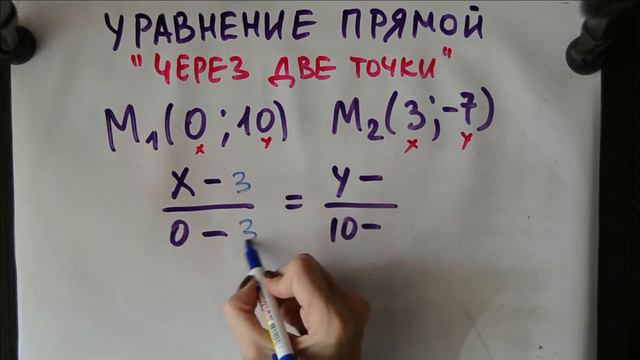 УРАВНЕНИЕ ПРЯМОЙ
"ЧЕРЕЗ ДВЕ ТОЧКИ"
M₁(0;10) M₂(3;-7)
x y x y
x - 3 = y -
0 - 3 10 -